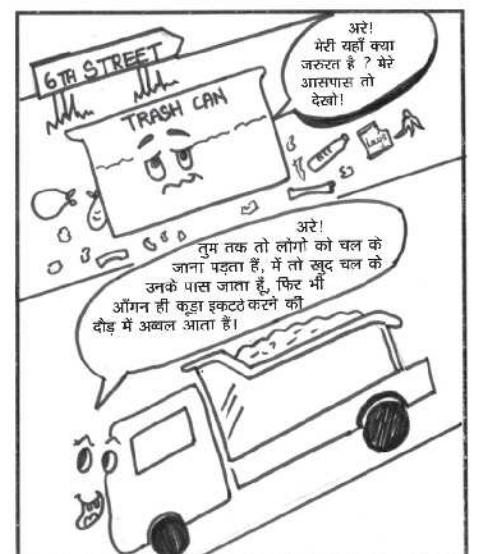 6TH STREET
TRASH CAN
अरे!
मेरी यहाँ क्या
जरुरत है ? मेरे
आसपास तो
देखो!
अरे!
तुम तक तो लोगो को चल के
जाना पड़ता हैं, में तो खुद चल के
उनके पास जाता हूँ, फिर भी
आँगन ही कूड़ा इकटठे करने की
दौड़ में अव्वल आता हैं।